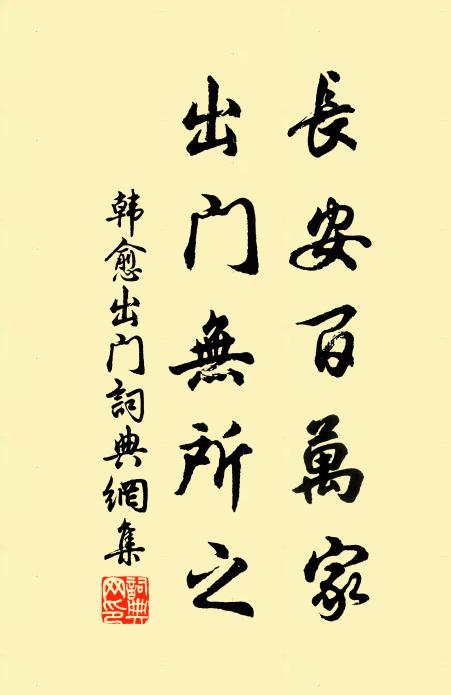 長安百萬家
出门無所之
韩愈出门詞典網集
詞典
网印